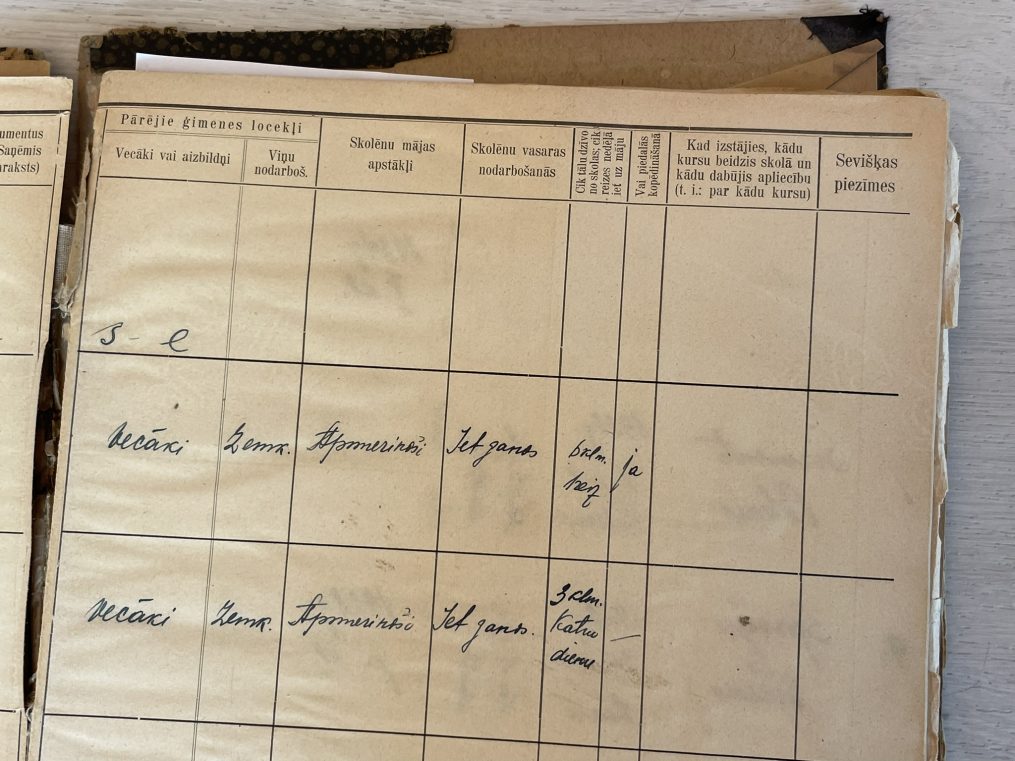 umentus
Saņēmis
araksts)
Pārējie ģimenes locekļi
Vecāki vai aizbildņi
Viņu
nodarboš.
Skolēnu mājas
apstākļi
Skolēnu vasaras
nodarbošanās
Cik tālu dzīvo
no skolas; cik
reizes nedēļā
iet uz māju
Vai piedalās
kopēdināšanā
Kad izstājies, kādu
kursu beidzis skolā un
kādu dabūjis apliecību
(t. i.: par kādu kursu)
Sevišķas
piezīmes
Vecāki
Zemk.
Apmierinoši
Iet ganos
6 klm.
ja
Vecāki
Zemk.
Apmierinoši
Iet ganos.
3 klm.
Katru
dienu
—